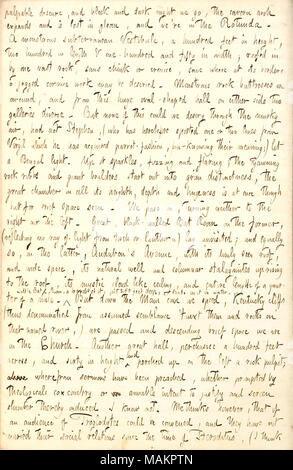 palpable obscure, and black and dark night we go, the cavern arch
expands and is lost in gloom, and we're in the Rotunda.
A monstrous subterranean Vestibule, a hundred feet in height,
two hundred in width & one hundred and fifty in width, roofed in
by one vast rock, sans clinks or crevice, save where at its borders
a jagged cornice work may be descried. Monstrous rock buttresses are
around, and from this huge oval-shaped hall on either side two
galleries diverge. But more if this could we descry through the murky
air, had not Stephen, (who has heretofore spouted one or two lines from
Virgil which he has acquired parrot-fashion, un-knowing their meaning) let
a Bengal light. Up it sparkles, fizzing and flaring the yawning
rock ribs and giant boulders start out into grim distinctness, the
great chamber in all its breadth, depth and hugeness is at one though
out for brief space seen. We pass on, turning neither to the
right nor the left. Great black-walled Bat Room on the former,
(reflecting no ray of light from torch or lanthorn) lay unvisited; and equally
so, in the latter, Audubon's Avenue, with its lonely deer hut,
and wide space, its natural well and columnar stalagmites uprising
to the roof, its mystic cloud like ceiling, and entire length of a quar-
ter of a mile. But down the Main cave we sped. Kentucky cliffs
(thus denominated from assumed semblance 'twixt them and rocks on
that named river,) are passed and descending brief space we are
in the Church. Another great hall, perchance a hundred feet
across, and sixty in height, and perched up on the left a rock pulpit,
wherefrom sermons have been preached, whether prompted by
theologic or an amiable intent to justify and screen
slumber thereby induced I know not. Me thinks however, that if
an audience of Troglodytes could be convened, and they have not
varied their social relations since the time of Herodotus, (I think